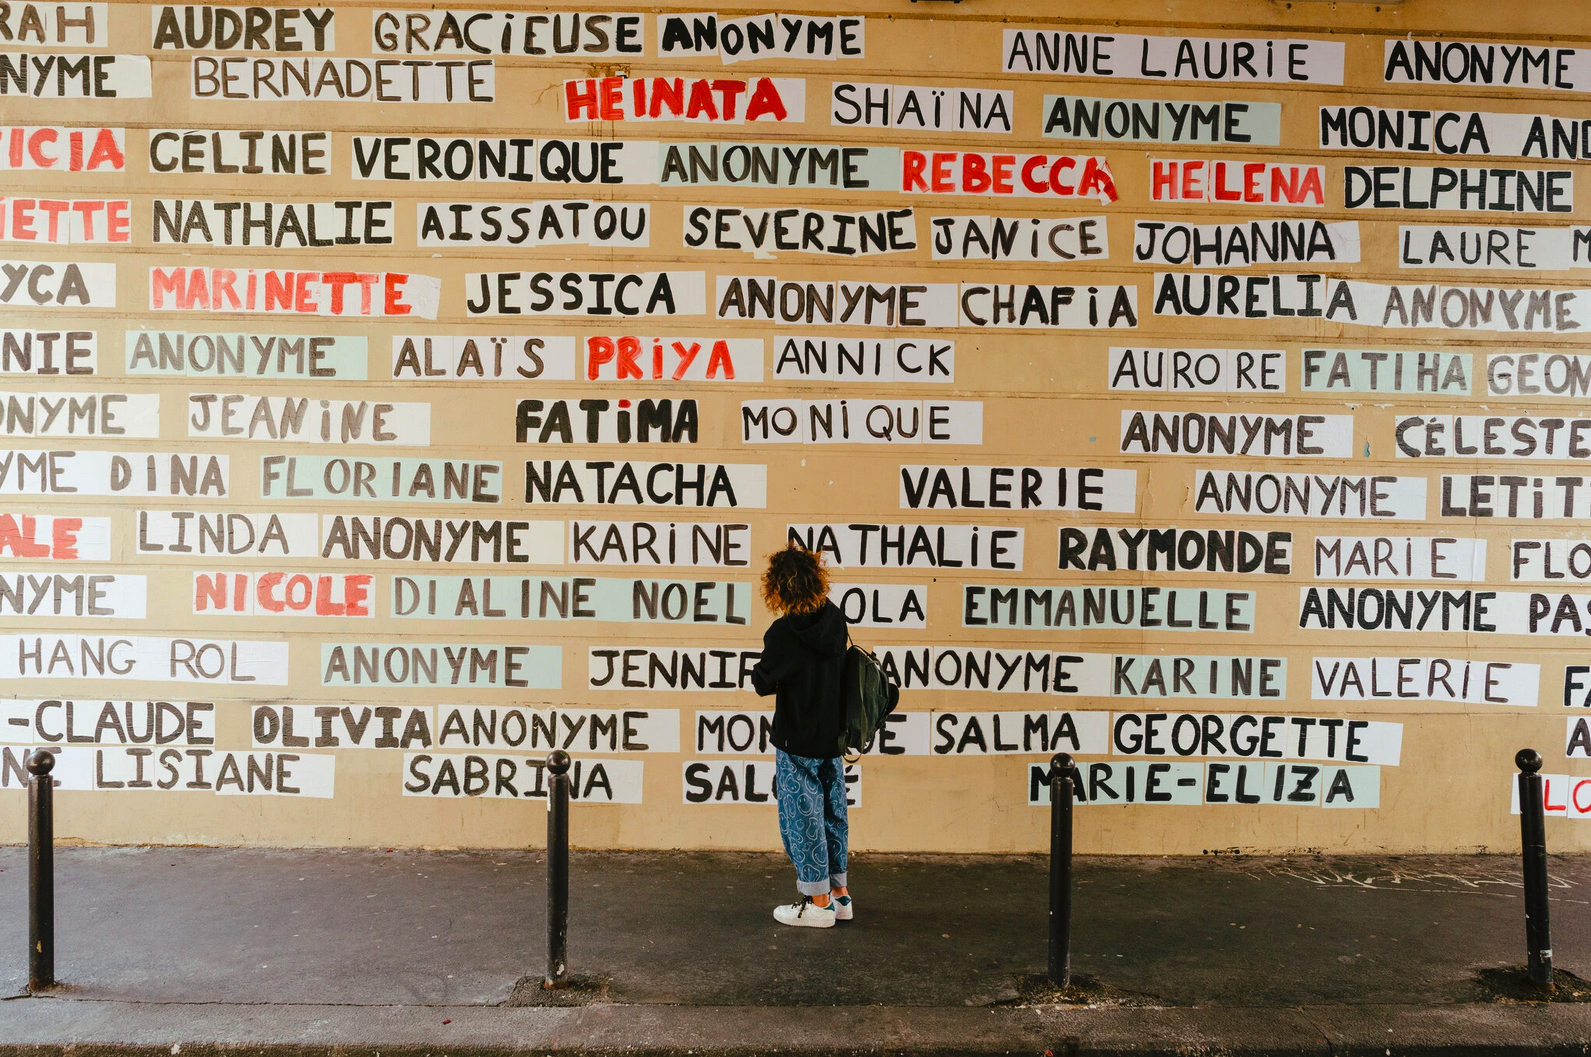 RAH AUDREY GRACiEUSE ANONYME ANNE LAURiE ANONYME
NYME BERNADETTE HEINATA SHAÏNA ANONYME MONICA AND
ICIA CÉLINE VERONIQUE ANONYME REBECCA HELENA DELPHINE
IETTE NATHALIE AISSATOU SEVERINE JANiCE JOHANNA LAURE M
YCA MARiNETTE JESSICA ANONYME CHAFiA AURELIA ANONYME
NIE ANONYME ALAÏS PRiYA ANNICK AURORE FATIHA GEOM
ONYME JEANiNE FATiMA MONiQUE ANONYME CÉLESTE
YME DINA FLORIANE NATACHA VALERIE ANONYME LETiT
ALE LINDA ANONYME KARiNE NATHALiE RAYMONDE MARiE FLO
NYME NICOLE DIALINE NOEL OLA EMMANUELLE ANONYME PA
HANG ROL ANONYME JENNIF ANONYME KARINE VALERiE F
-CLAUDE OLIVIA ANONYME MON UE SALMA GEORGETTE A
NE LISIANE SABRINA SAL É MARIE-ELIZA LO